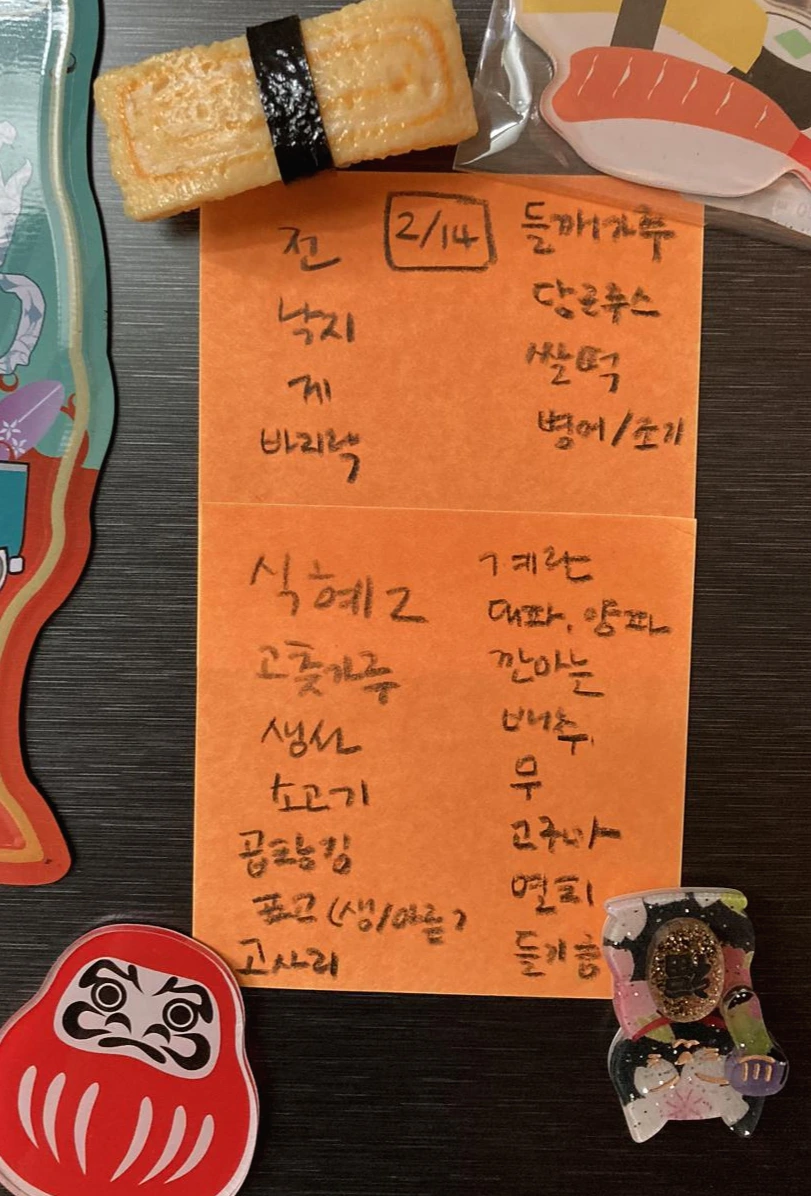 2/14
전
낙지
게
바지락
들깨가루
당근쥬스
쌀떡
병어/조기
식혜 2
고춧가루
생선
소고기
곱창김
표고(생/마른)
고사리
계란
대파, 양파
깐마늘
배추,
무
고구마
연티
들기름